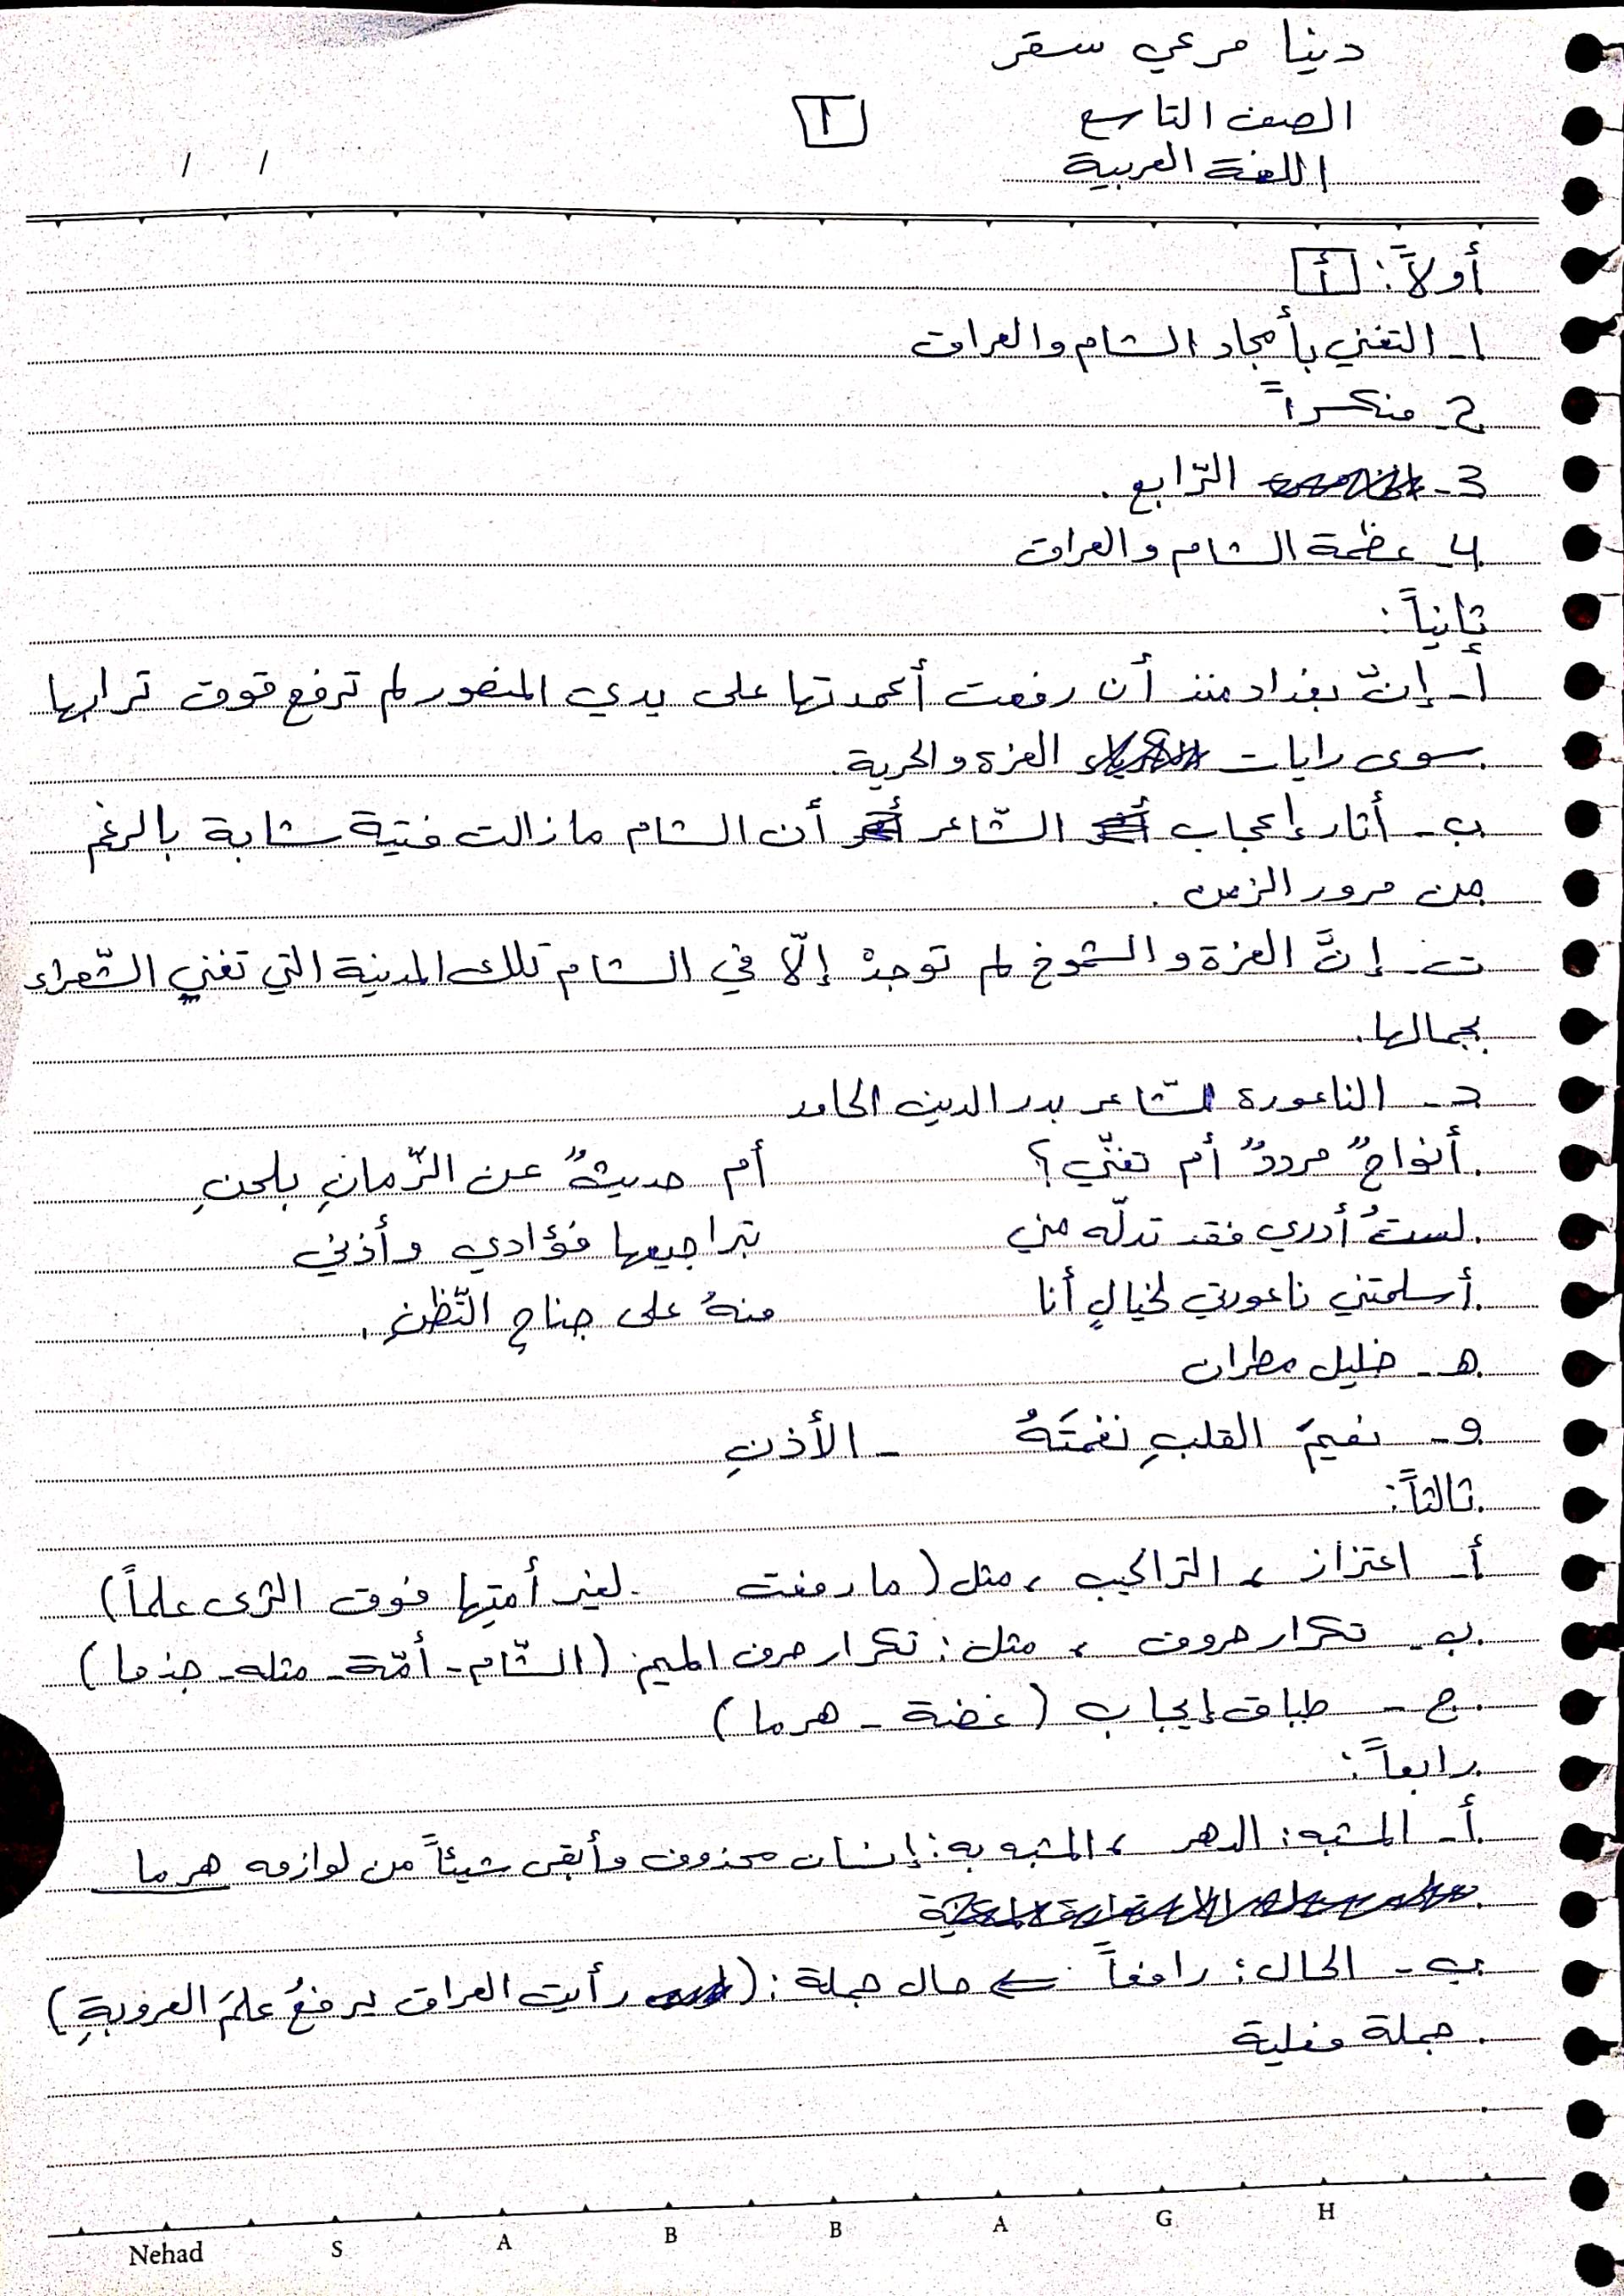 دينا مرعي سقر
الصف التاسع
1
اللغة العربية
/ /
أولاً: أ
1- التغني بأمجاد الشام والعراق
2- منكسراً
3- الرّابع.
4- عظمة الشام والعراق
ثانياً:
أ- إنّ بغداد منذ أن رفعت أعمدتها على يدي المنصور لم ترفع فوق ترابها
سوى رايات العزة والحرية.
ب- أثار إعجاب الشّاعر أن الشام مازالت فتية شابة بالرغم
من مرور الزمن.
ت- إنَّ العزة والشموخ لم توجدْ إلّا في الشام تلك المدينة التي تغني الشّعراء
بجمالها.
د- الناعورة الشّاعر بدر الدين الحامد
أنواحٌ مرددٌ أم تغنّي؟ أم حديثٌ عن الزّمانِ بلحنِ
لستُ أدري فقد تدلّه مني بتراجيعها فؤادي وأذني
أسلمتني ناعورتي لخيالٍ أنا منهُ على جناحِ التّظنِ.
هـ- خليل مطران
و- نعيمَ القلبِ نغمتَهُ - الأذنِ
ثالثاً:
أ- اعتزاز، التراكيب، مثل (ما رفعت لغير أمتِها فوق الثرى علماً)
ب- تكرار حروف، مثل: تكرار حرف الميم (الشّام - أمّة - مثله - جذما)
ج- طباق إيجاب (غضة - هرما)
رابعاً:
أ- المشبه: الدهر، المشبه به: إنسان محذوف وأبقى شيئاً من لوازمه هرما
ب- الحال: رافعاً ← حال جملة: (رأيت العراق يرفعُ علمَ العروبةِ)
جملة فعلية
Nehad S A B B A G H